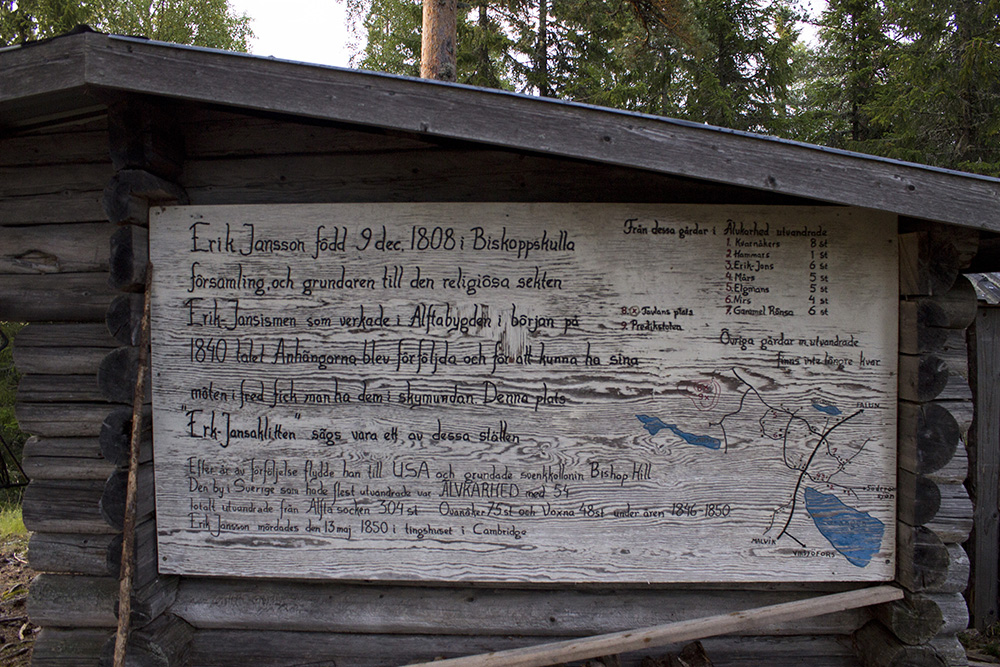 Erik Jansson född 9 dec. 1808 i Biskoppskulla
församling, och grundaren till den religiösa sekten
Erik-Jansismen som verkade i Alftabygden i början på
1840 talet Anhängarna blev förföljda och för att kunna ha sina
möten i fred fick man ha dem i skymundan Denna plats
"Erk-Jansaklitten" sägs vara ett av dessa ställen
Efter år av förföljelse flydde han till USA och grundade svenkkollonin Bishop Hill
Den by i Sverige som hade flest utvandrade var ÄLVKARHED med 54
totalt utvandrade från Alfta socken 304 st Ovanåker 75 st och Voxna 48 st under åren 1846-1850
Erik Jansson mördades den 13 maj 1850 i tingshuset i Cambridge
Från dessa gårdar i Älvkarhed utvandrade
1. Kvarnåkers 8 st
2 Hammars 1 st
3. Erik-Jons 6 st
4. Mårs 5 st
5. Elgmans 5 st
6. Mirs 4 st
7. Gammel Rånsa 6 st
8. Ⓧ Tavlans plats
9. Predikstolen
Övriga gårdar m. utvandrade
finns inte längre kvar
FALUN
MALVIK